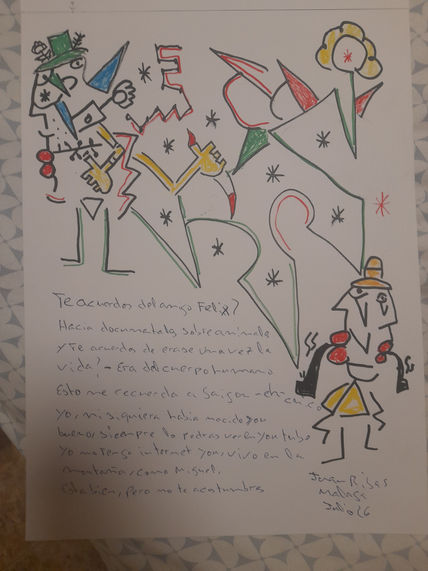 Te acuerdas del amigo Felix?
Hacia documentales sobre animale
y Te acuerdas de erase una vez la
vida? - Era del cuerpo humano
Esto me recuerda a Saigon - chi chico
yo, ni siquiera habia nacido yon
bueno, siempre lo podras ver en youtube
yo no Tengo internet yon, vivo en la
montaña, como Miguel.
Esta bien, pero no te acostumbras
Juan Ribas
Malaga
Julio 26